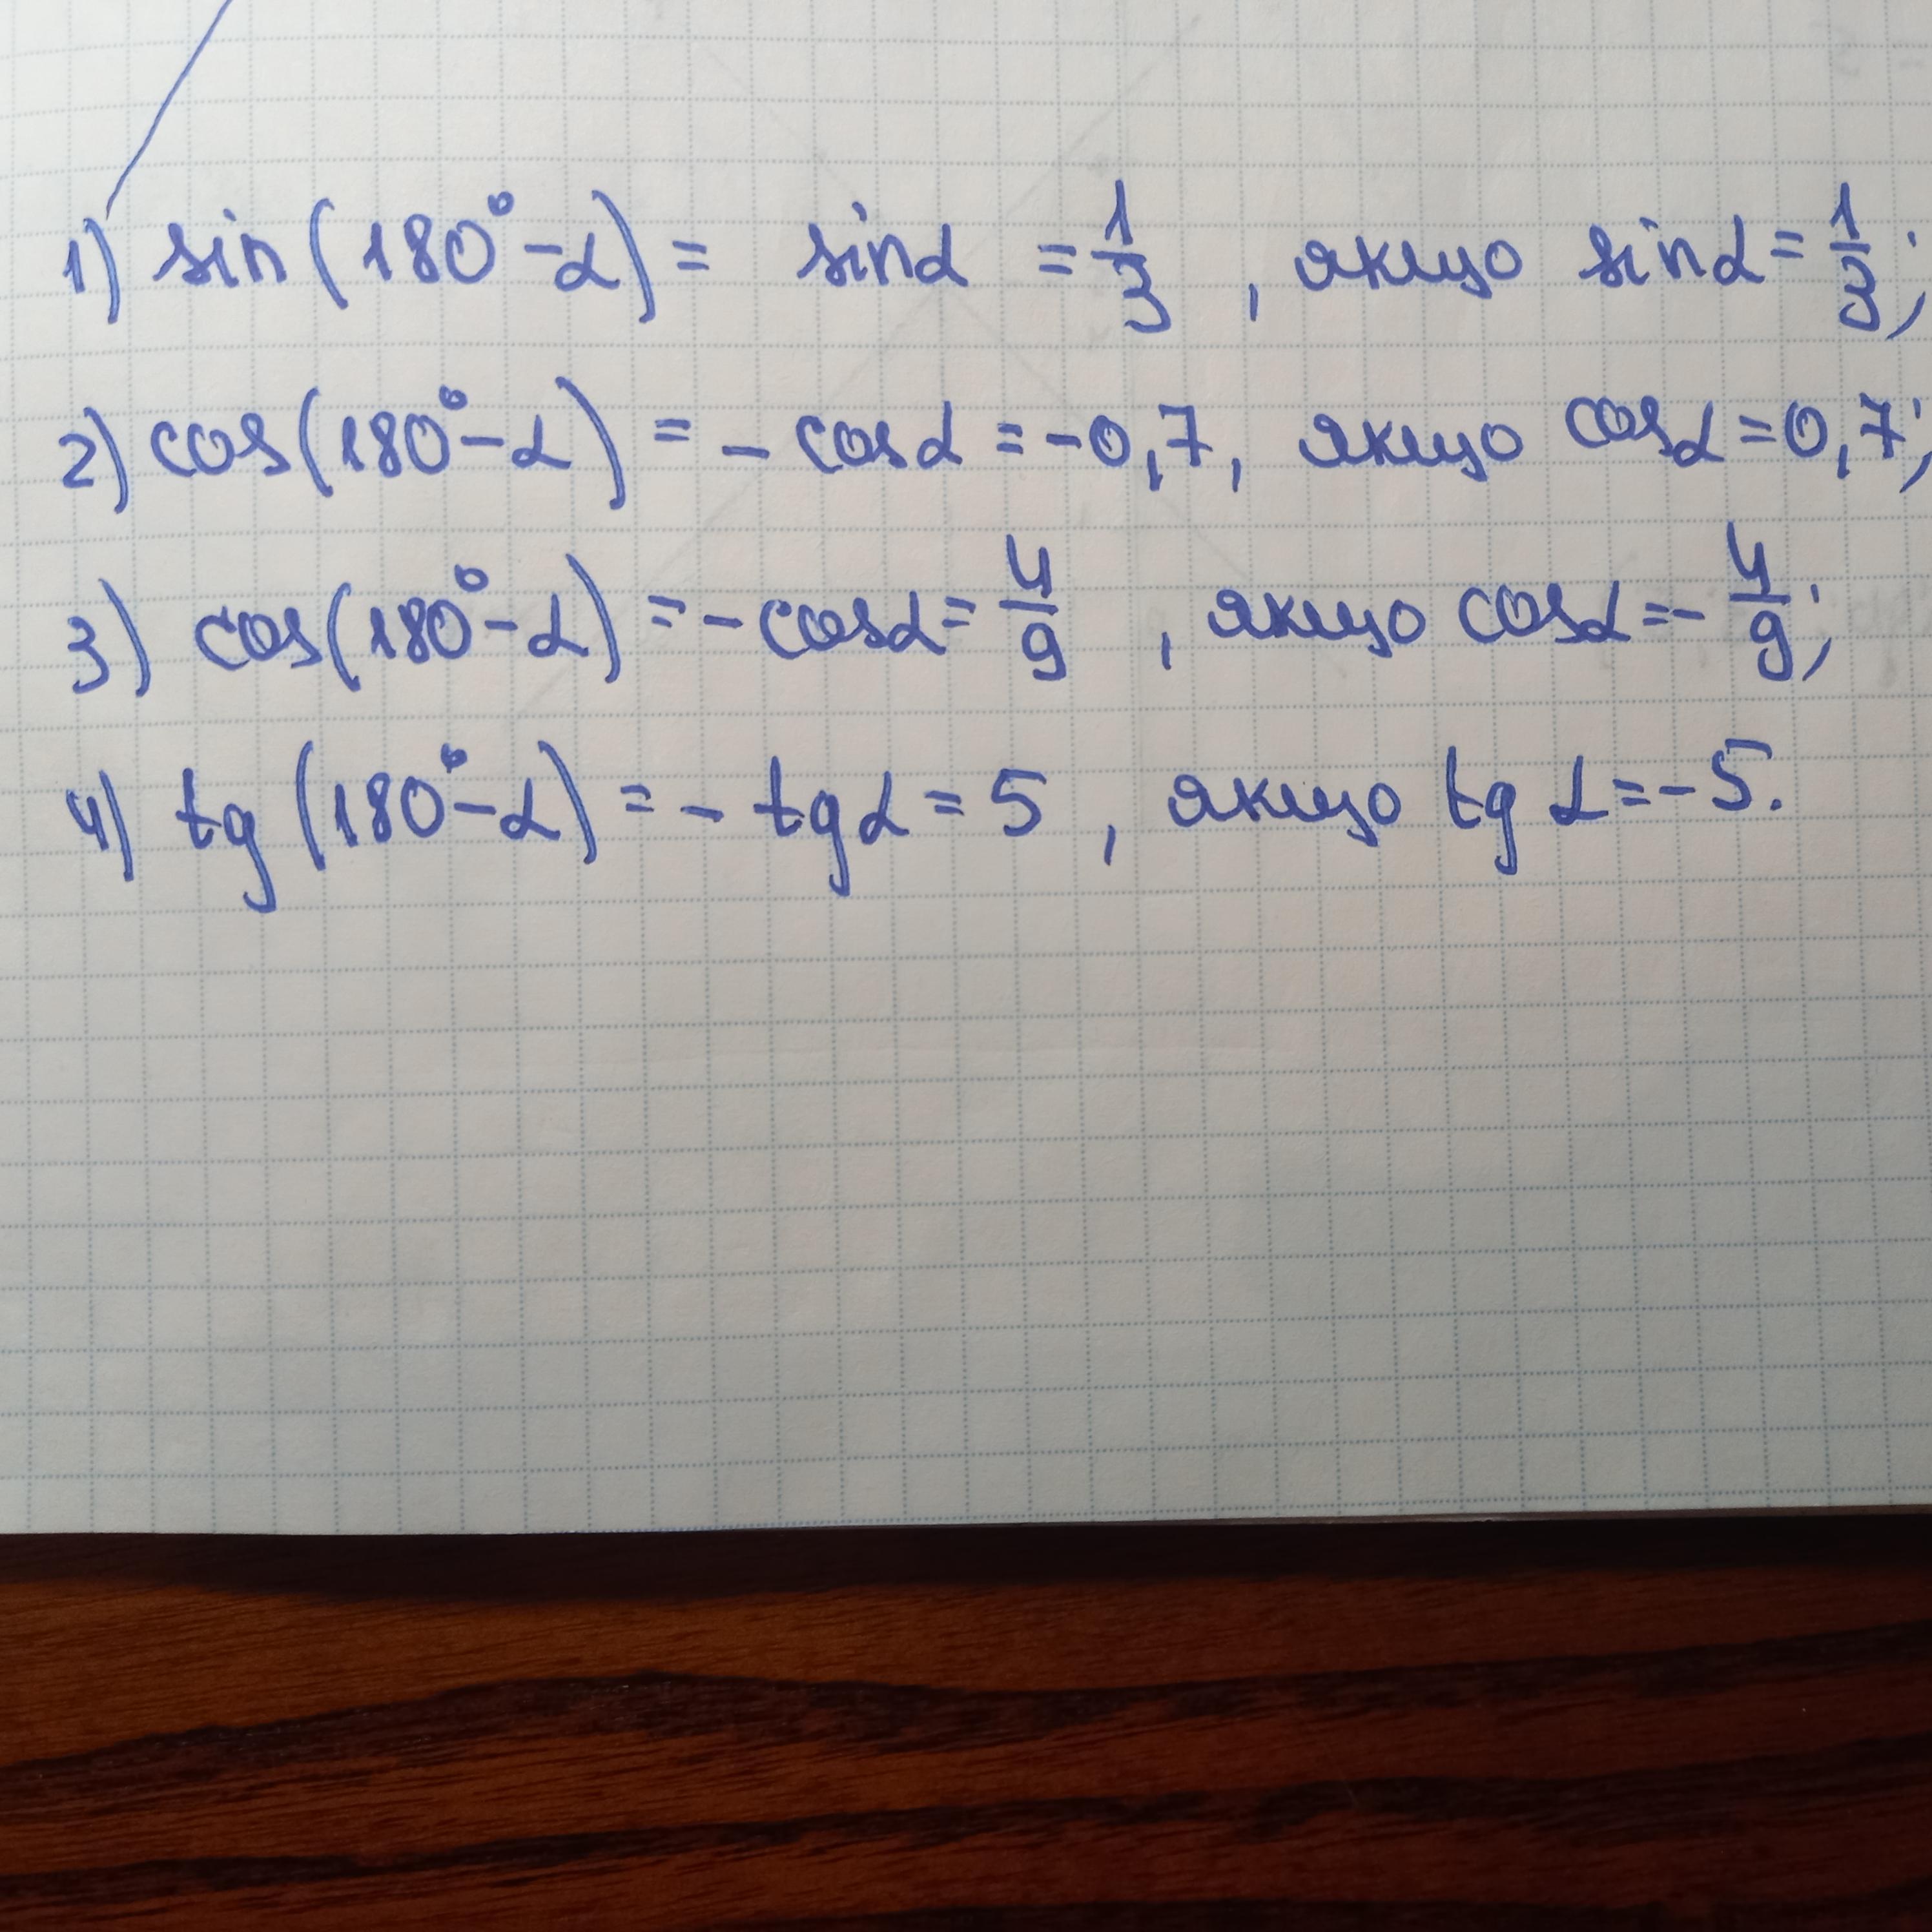 1) sin(180°-α) = sinα = 1/3 , якщо sinα = 1/3;
2) cos(180°-α) = - cosα = -0,7, якщо cosα = 0,7;
3) cos(180°-α) = - cosα = 4/9 , якщо cosα = - 4/9;
4) tg(180°-α) = - tgα = 5 , якщо tg α = -5.